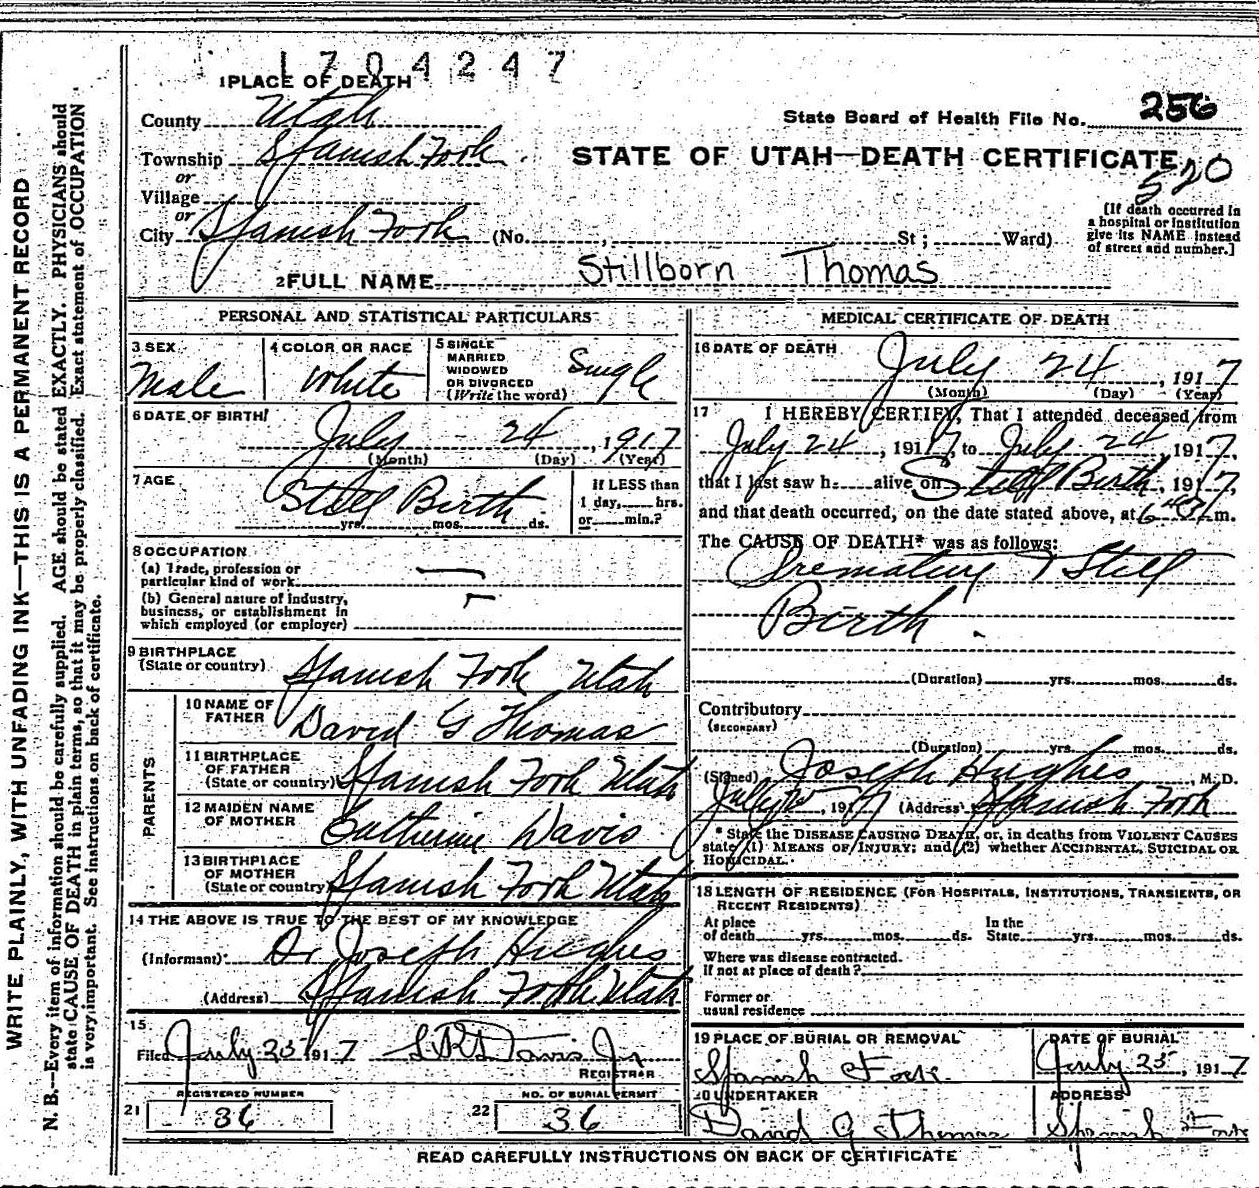 1704247
1 PLACE OF DEATH
County Utah
State Board of Health File No. 256
Township Spanish Fork
STATE OF UTAH—DEATH CERTIFICATE
520
or
Village
or
City Spanish Fork (No. , St ; Ward)
[If death occurred in
a hospital or institution
give its NAME instead
of street and number.]
2 FULL NAME Stillborn Thomas
PERSONAL AND STATISTICAL PARTICULARS
3 SEX
Male
4 COLOR OR RACE
White
5 SINGLE
MARRIED
WIDOWED
OR DIVORCED
(Write the word)
Single
6 DATE OF BIRTH
July 24, 1917
(Month) (Day) (Year)
7 AGE
Still Birth
yrs. mos. ds.
If LESS than
1 day, hrs.
or min.?
8 OCCUPATION
(a) Trade, profession or
particular kind of work —
(b) General nature of industry,
business, or establishment in
which employed (or employer)
9 BIRTHPLACE
(State or country) Spanish Fork Utah
PARENTS
10 NAME OF
FATHER David G Thomas
11 BIRTHPLACE
OF FATHER
(State or country) Spanish Fork Utah
12 MAIDEN NAME
OF MOTHER Catherine Davis
13 BIRTHPLACE
OF MOTHER
(State or country) Spanish Fork Utah
14 THE ABOVE IS TRUE TO THE BEST OF MY KNOWLEDGE
(Informant) Dr Joseph Hughes
(Address) Spanish Fork Utah
15
Filed July 25 1917 Davis Jr
REGISTRAR
REGISTERED NUMBER
21 36
NO. OF BURIAL PERMIT
22 36
MEDICAL CERTIFICATE OF DEATH
16 DATE OF DEATH
July 24, 1917
(Month) (Day) (Year)
17 I HEREBY CERTIFY, That I attended deceased from
July 24, 1917, to July 24 1917,
that I last saw h alive on Still Birth, 1917,
and that death occurred, on the date stated above, at m.
The CAUSE OF DEATH* was as follows:
Premature & Still
Birth.
(Duration) yrs. mos. ds.
Contributory
(SECONDARY)
(Duration) yrs. mos. ds.
(Signed) Joseph Hughes, M. D.
July, 1917 (Address) Spanish Fork
* State the DISEASE CAUSING DEATH, or, in deaths from VIOLENT CAUSES
state (1) MEANS OF INJURY; and (2) whether ACCIDENTAL, SUICIDAL OR
HOMICIDAL.
18 LENGTH OF RESIDENCE (FOR HOSPITALS, INSTITUTIONS, TRANSIENTS, OR
RECENT RESIDENTS)
At place
of death yrs. mos. ds.
In the
State yrs. mos. ds.
Where was disease contracted.
If not at place of death?
Former or
usual residence
19 PLACE OF BURIAL OR REMOVAL
Spanish Fork.
DATE OF BURIAL
July 25, 1917
20 UNDERTAKER
David G Thomas
ADDRESS
Spanish Fork
READ CAREFULLY INSTRUCTIONS ON BACK OF CERTIFICATE
WRITE PLAINLY, WITH UNFADING INK—THIS IS A PERMANENT RECORD
N. B.—Every item of information should be carefully supplied. AGE should be stated EXACTLY. PHYSICIANS should
state CAUSE OF DEATH in plain terms, so that it may be properly classified. Exact statement of OCCUPATION
is very important. See instructions on back of certificate.